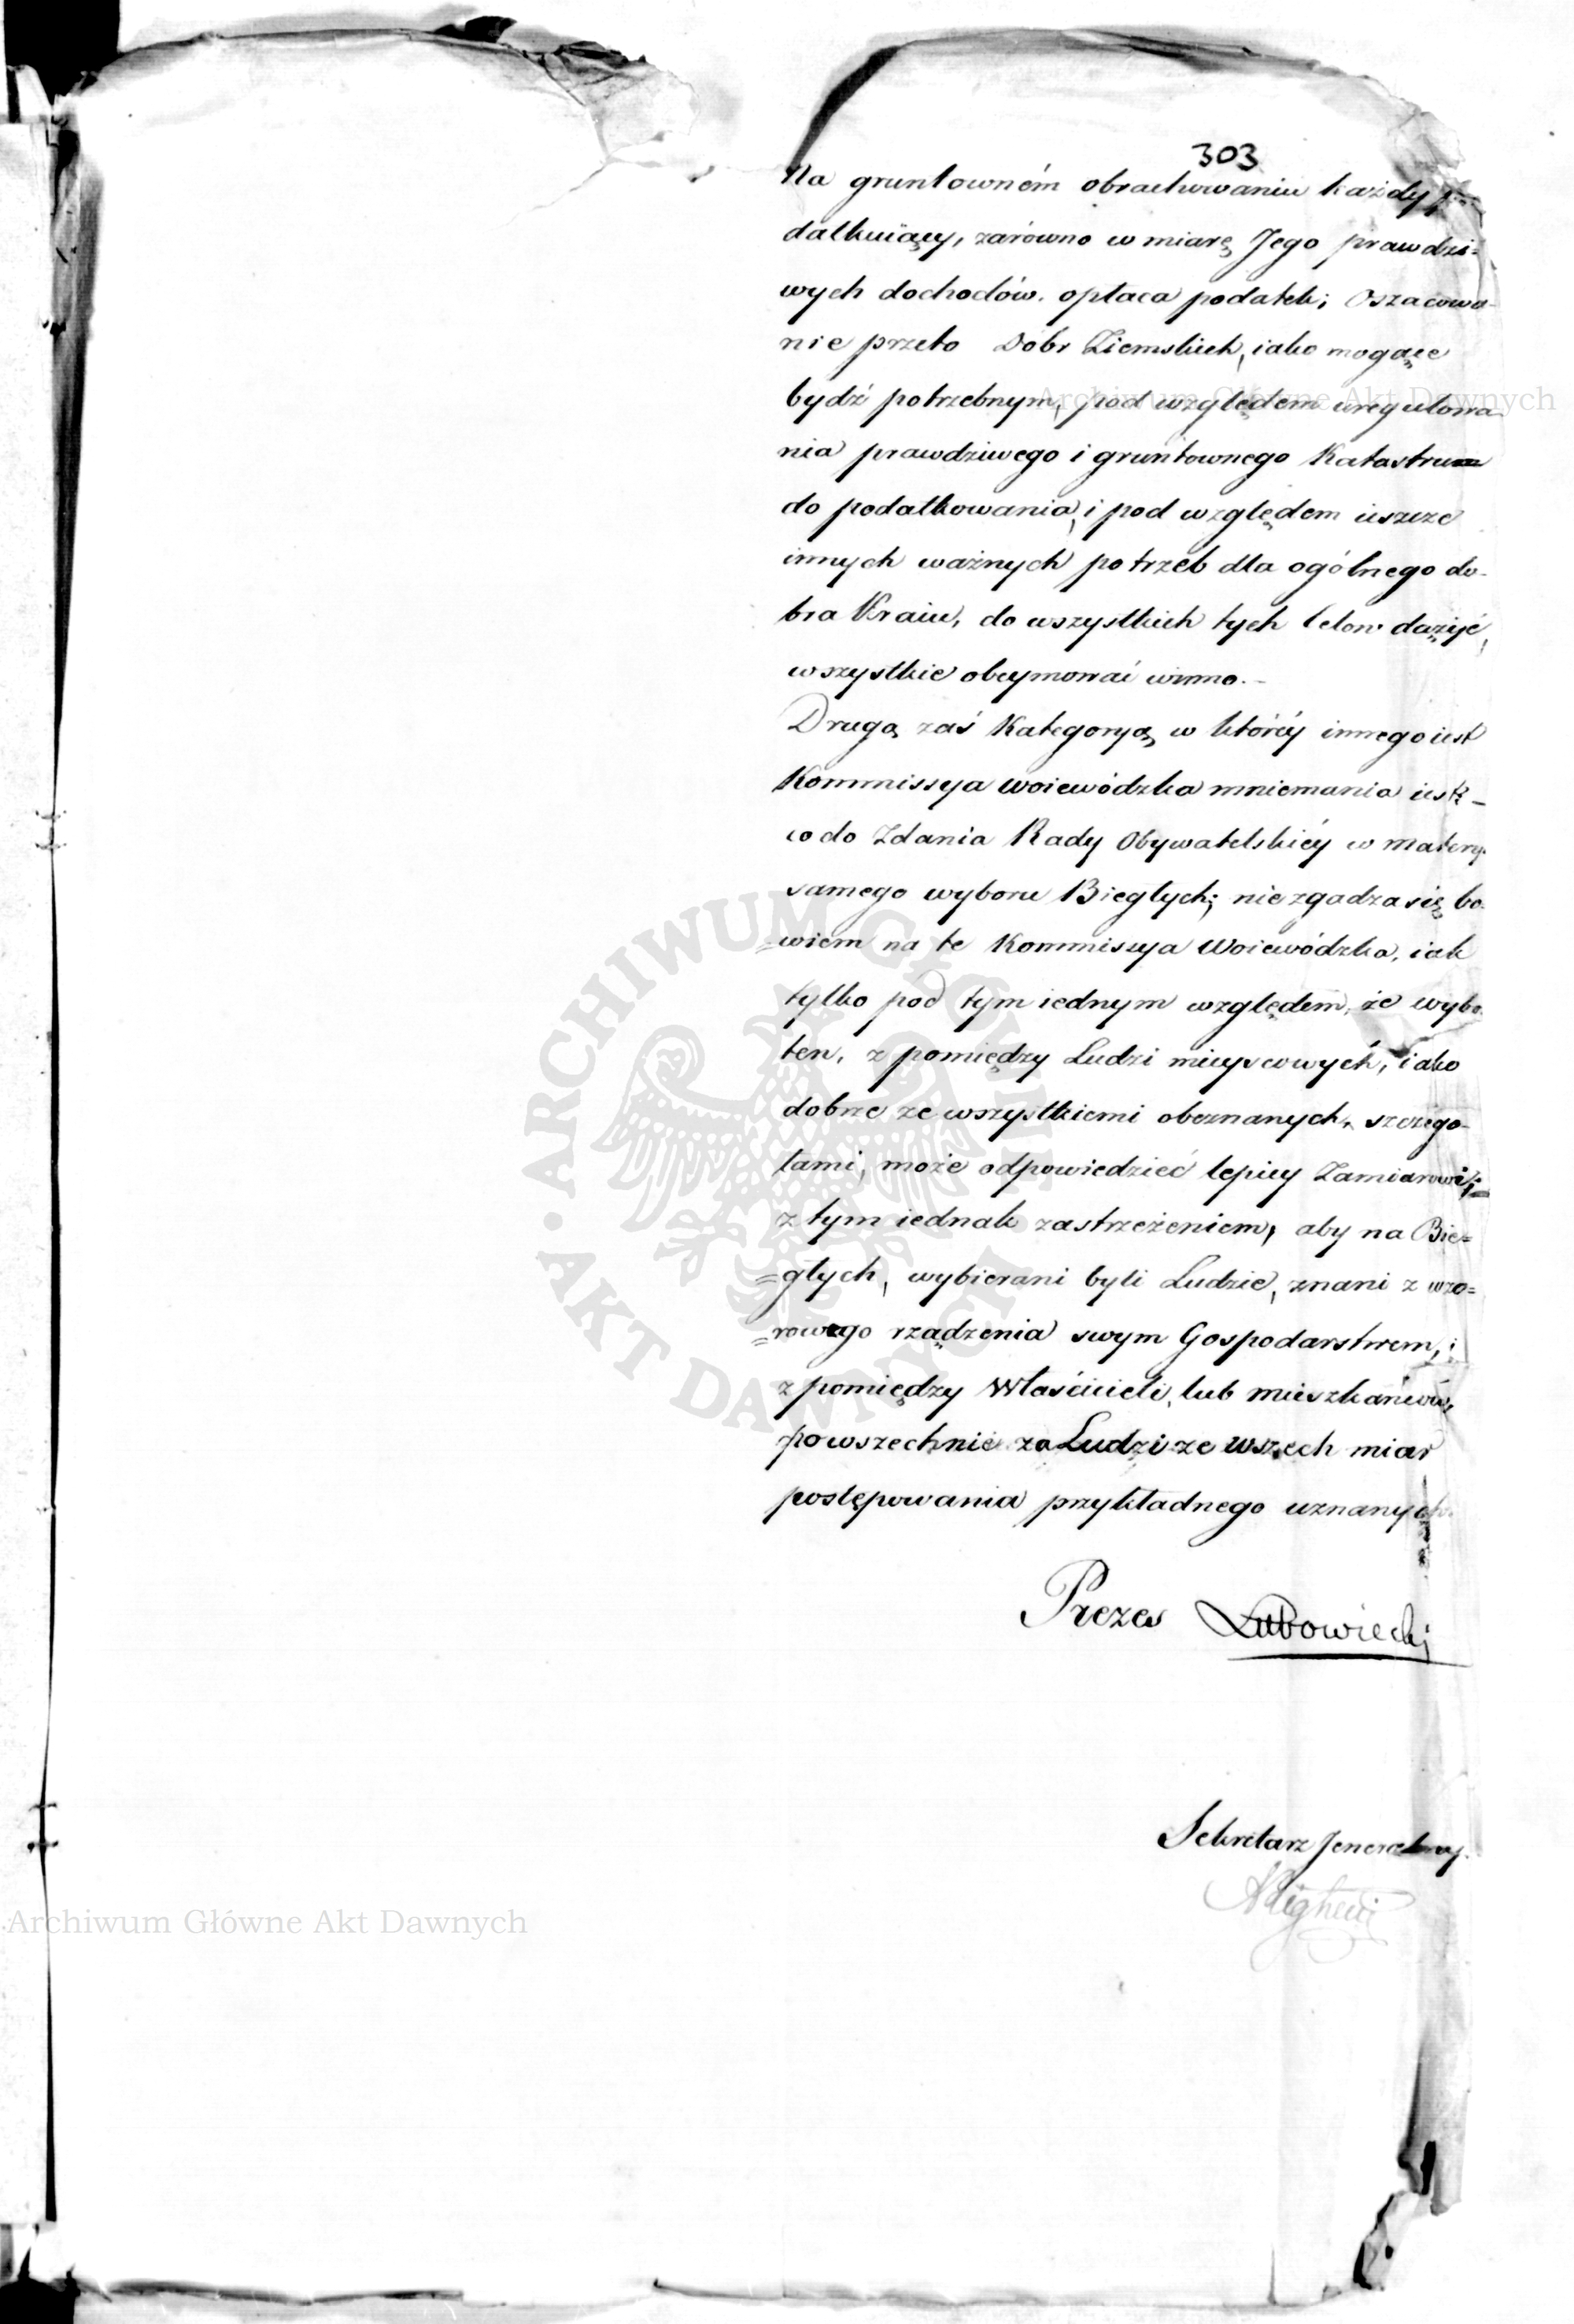 303
Na gruntowném obrachowaniu każdy
datkuiący, zarówno w miarę Jego prawdzi=
wych dochodów, opłaca podatek; Oszacowa-
nie przeto Dobr Ziemskich, iako mogące
bydź potrzebnym, pod względem uregulowa-
nia prawdziwego i gruntownego Katastrum
do podatkowania, i pod względem ieszcze
innych ważnych potrzeb dla ogólnego do-
bra Kraiu, do wszystkich tych Celow dążyć,
wszystkie obeymować winno.-
Drugą zaś Kategoryą, w któréy innego iest
Kommissya Woiewódzka mniemania iest -
co do Zdania Rady Obywatelskiéy w matery
samego wyboru Biegłych; nie zgadza się bo
=wiem na te Kommissya Woiewódzka, iak
tylko pod tym iednym względem, że wybo
ten, z pomiędzy Ludzi mieyscowych, iako
dobrze ze wszystkiemi obeznanych, szczegó-
łami, może odpowiedzieć lepiey Zamiarowi;
z tym iednak zastrzeżeniem, aby na Bie=
=głych, wybierani byli Ludzie, znani z wzo=
=rowego rządzenia swym Gospodarstwem, i
z pomiędzy Właścicieli, lub mieszkańców,
powszechnie za Ludzi ze wszech miar
postępowania przykładnego uznanych.
Prezes Lubowiecki
Sekretarz Jeneralny.
Archiwum Główne Akt Dawnych
Archiwum Główne Akt Dawnych
ARCHIWUM GŁÓWNE · AKT DAWNYCH ·